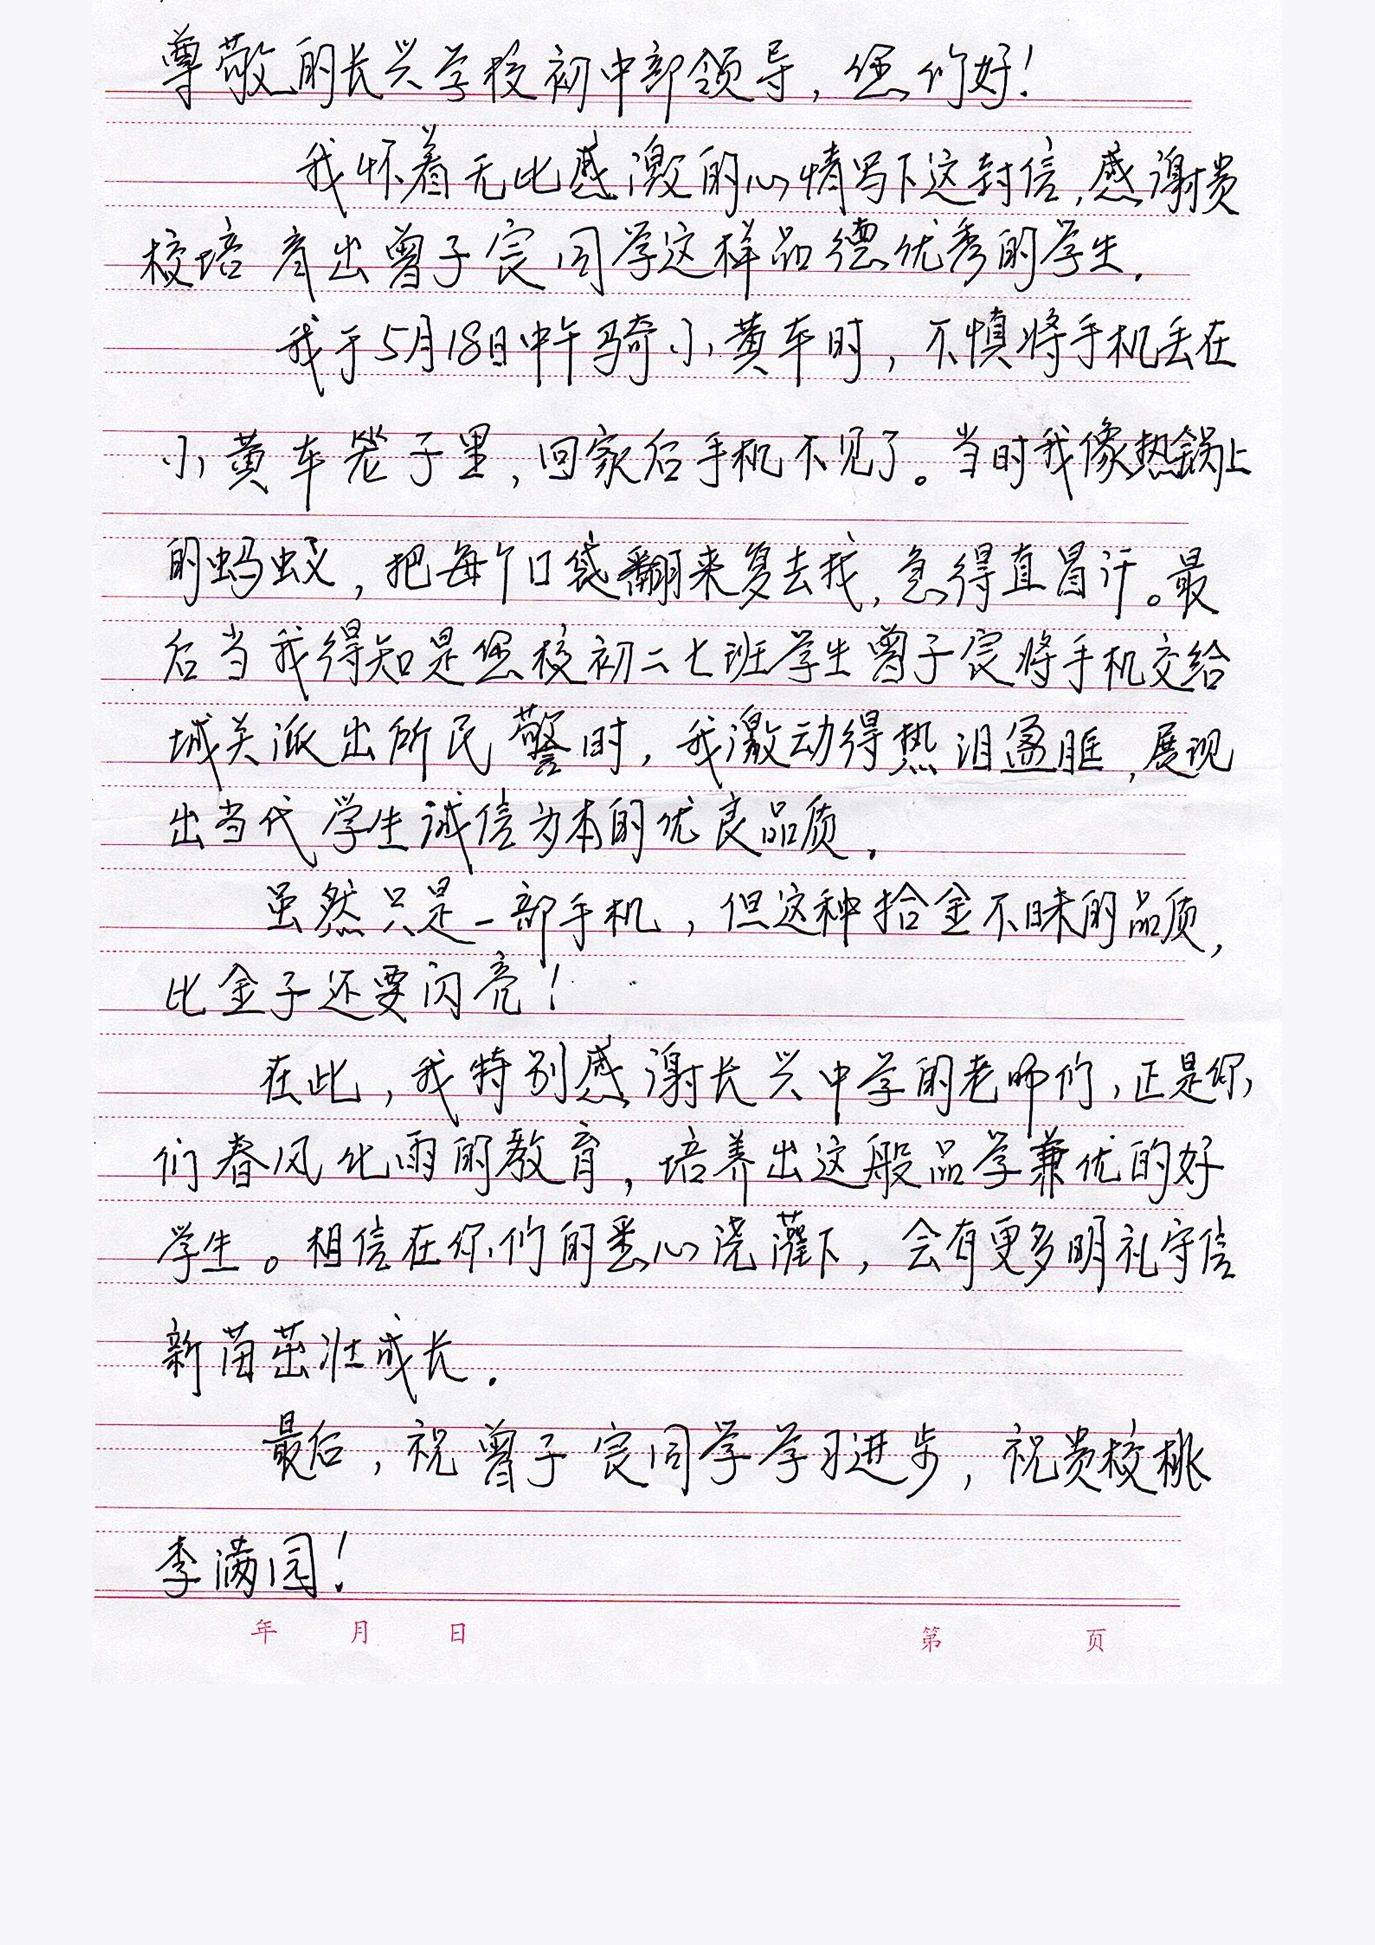 尊敬的长兴学校初中部领导，您们好！
我怀着无比感激的心情写下这封信，感谢贵
校培育出曾子宸同学这样品德优秀的学生．
我于5月18日中午骑小黄车时，不慎将手机丢在
小黄车笼子里，回家后手机不见了。当时我像热锅上
的蚂蚁，把每个口袋翻来复去找，急得直冒汗。最
后当我得知是您校初二七班学生曾子宸将手机交给
城关派出所民警时，我激动得热泪盈眶，展现
出当代学生诚信为本的优良品质．
虽然只是一部手机，但这种拾金不昧的品质，
比金子还要闪亮！
在此，我特别感谢长兴中学的老师们，正是你
们春风化雨的教育，培养出这般品学兼优的好
学生。相信在你们的悉心浇灌下，会有更多明礼守信
新苗茁壮成长．
最后，祝曾子宸同学学习进步，祝贵校桃
李满园！
年 月 日 第 页